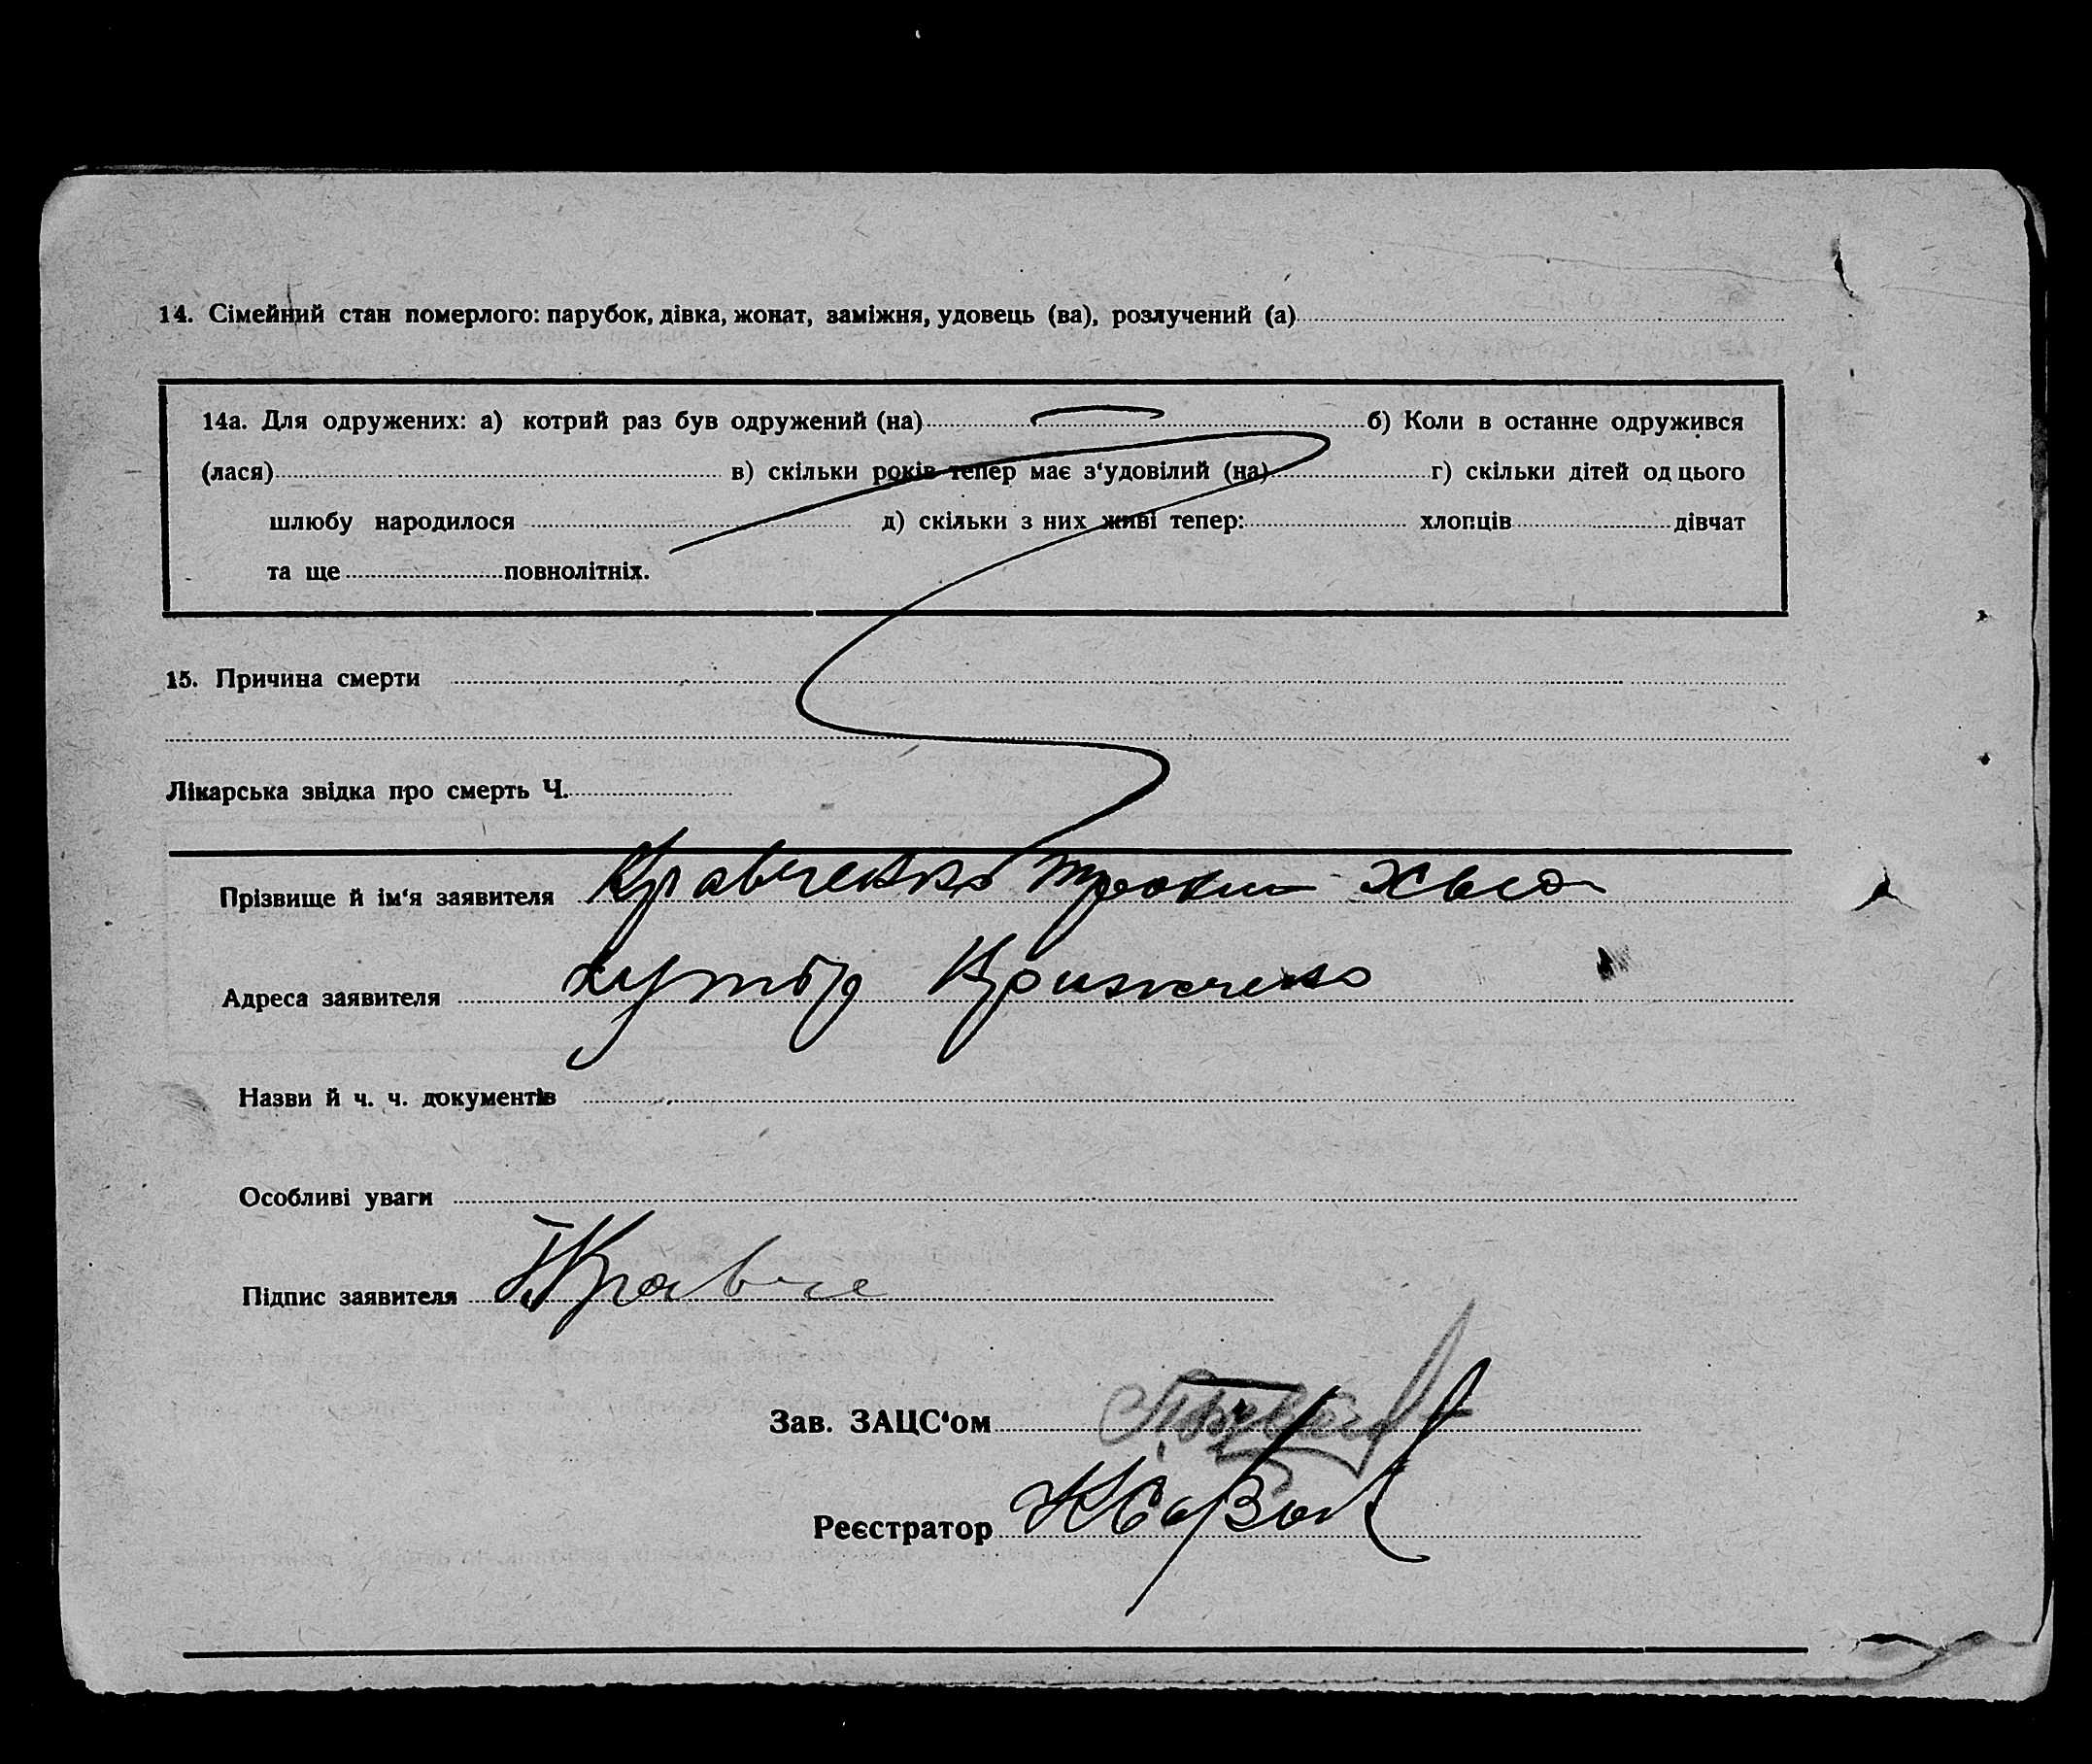 14. Сімейний стан померлого: парубок, дівка, жонат, заміжня, удовець (ва), розлучений (а)
14а. Для одружених: а) котрий раз був одружений (на) б) Коли в останнє одружився
(лася) в) скільки років тепер має з‘удовілий (на) г) скільки дітей од цього
шлюбу народилося д) скільки з них живі тепер: хлопців дівчат
та ще повнолітніх.
15. Причина смерти
Лікарська звідка про смерть Ч.
Прізвище й ім‘я заявителя Кравченко
Адреса заявителя хутір
Назви й ч. ч. документів
Особливі уваги
Підпис заявителя Кравче
Зав. ЗАЦС‘ом
Реєстратор